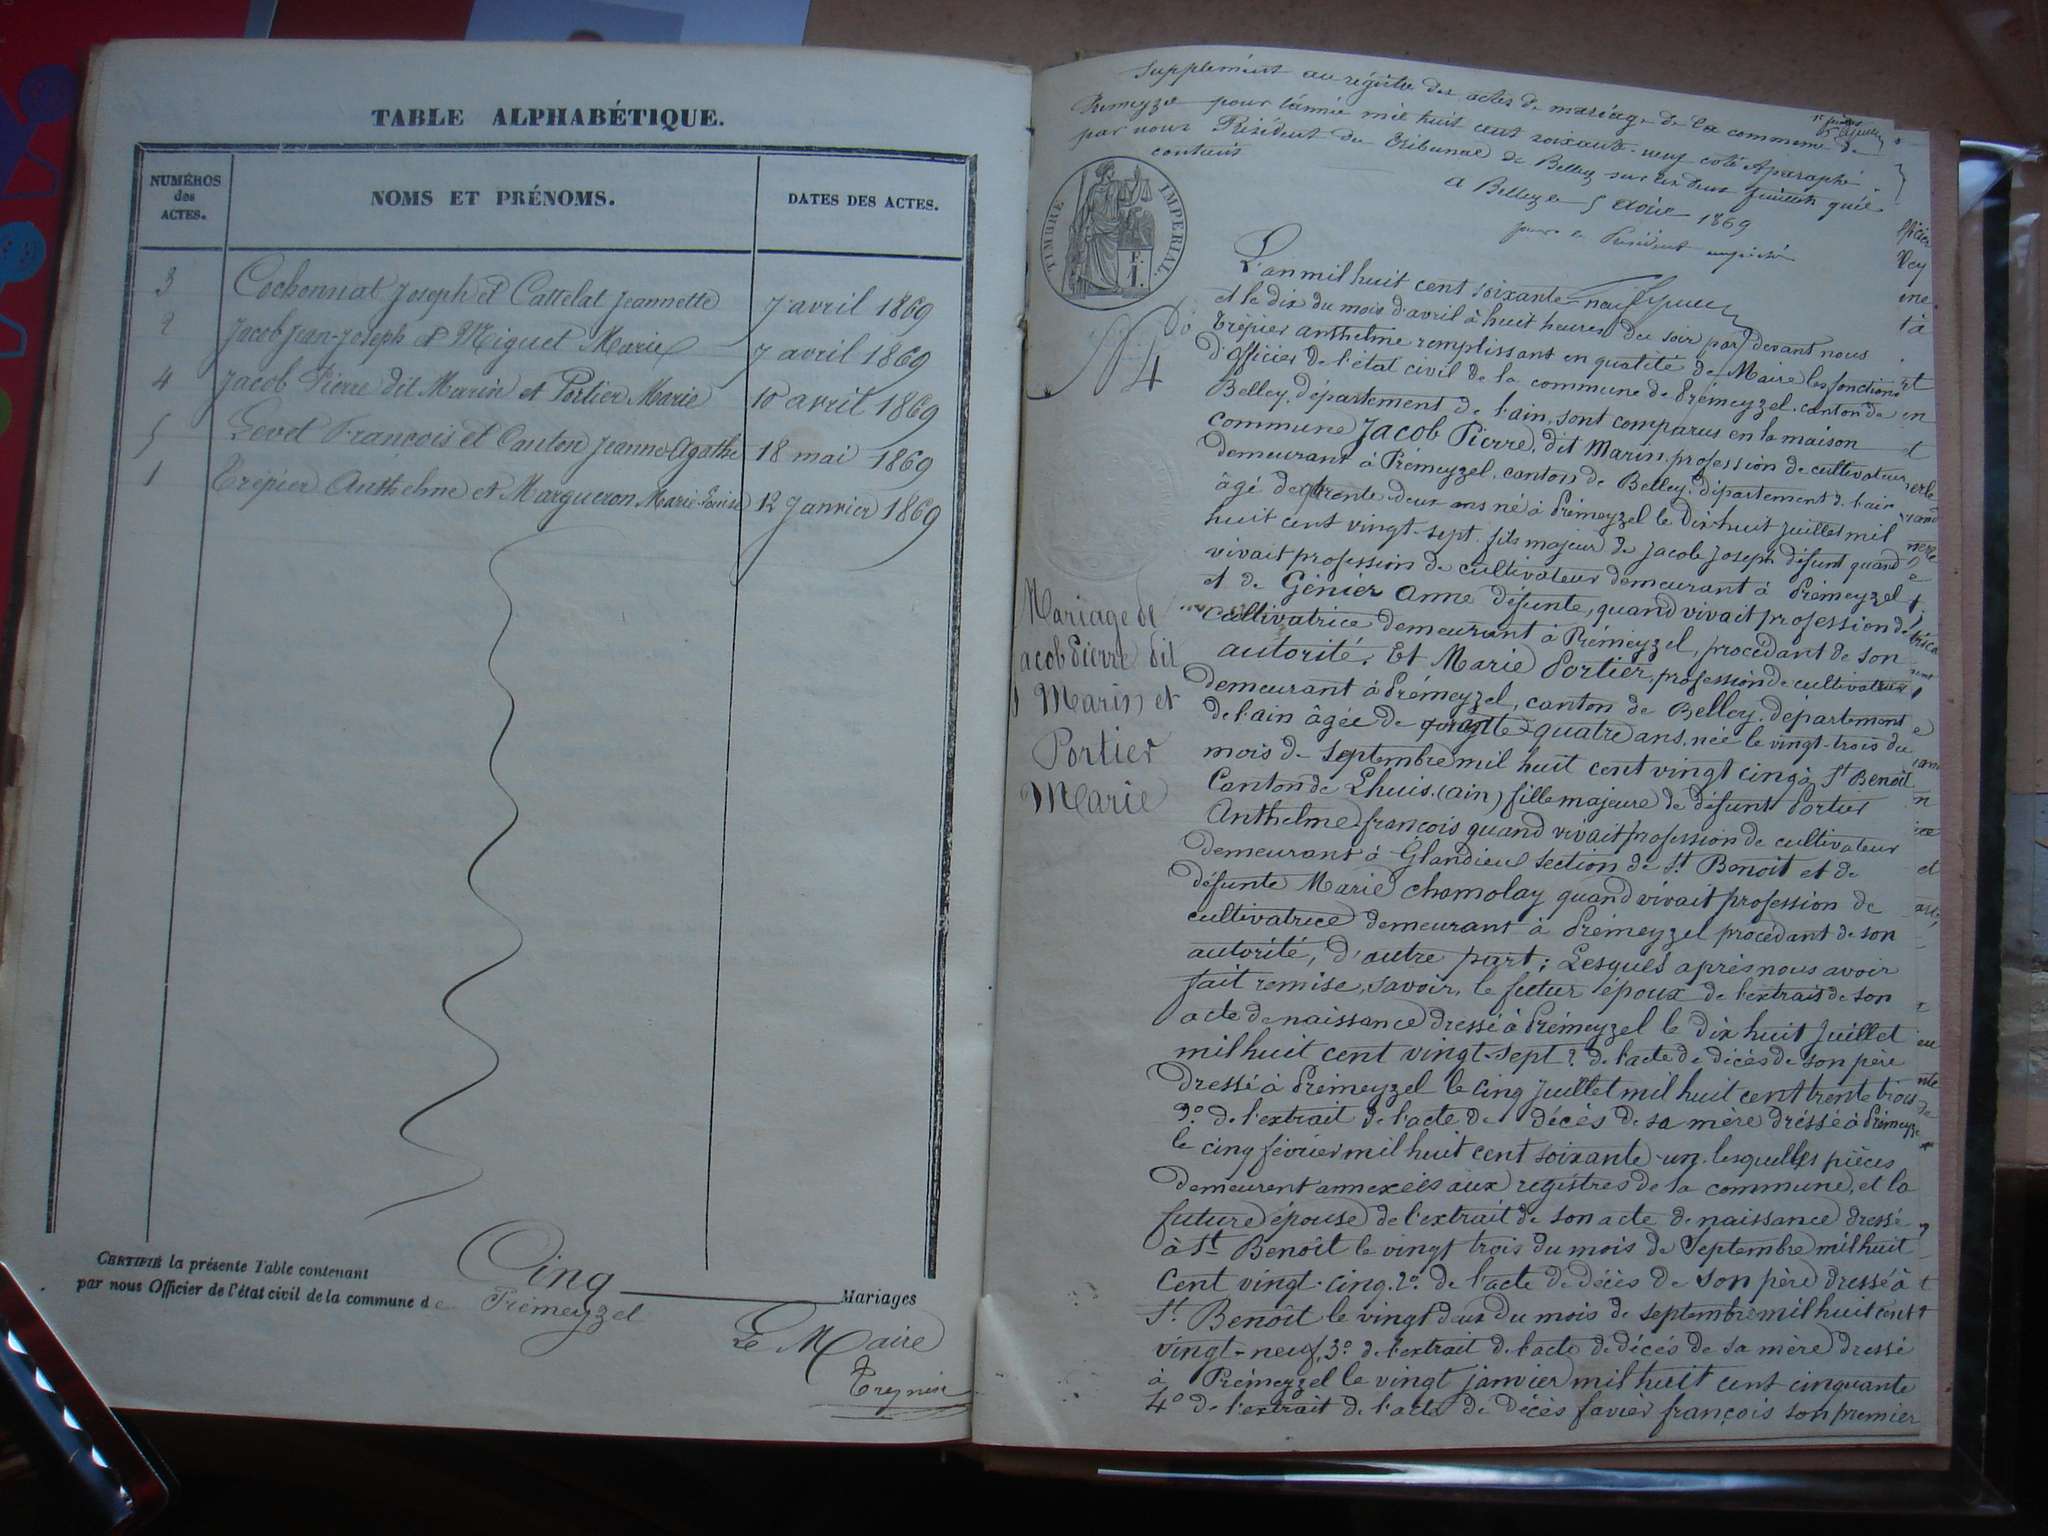 TABLE ALPHABÉTIQUE.
NUMÉROS
des
ACTES.
NOMS ET PRÉNOMS.
DATES DES ACTES.
3 Cochonnat Joseph et Cattelat Jeannette 7 avril 1869
2 Jacob Jean-Joseph et Miguet Marie 7 avril 1869
4 Jacob Pierre dit Marin et Portier Marie 10 avril 1869
5 Levet François et Canton Jeanne-Agathe 18 mai 1869
1 Trépier Anthelme et Margueron Marie-Louise 12 Janvier 1869
CERTIFIÉ la présente Table contenant Cinq Mariages
par nous Officier de l'état civil de la commune de Prémeyzel
Le Maire
Supplément au régistre des actes de mariage de la commune de
Premeyzel pour l'année mil huit cent soixante-neuf coté & paraphé
par nous Président du Tribunal de Belley sur les deux feuillets qu'il
contient
a Belley le 5 août 1869
pour le Président empêché
TIMBRE IMPERIAL.
F.
1.
No
4
L'an mil huit cent soixante-neuf
et le dix du mois d'avril à huit heures du soir par devant nous
Trépier anthelme remplissant en qualité de Maire les fonctions
d'officier de l'état civil de la commune de Prémeyzel, canton de
Belley, département de l'ain, sont comparus en la maison
commune Jacob Pierre, dit Marin, profession de cultivateur
demeurant à Prémeyzel, canton de Belley, département de l'ain
âgé de trente-deux ans né à Prémeyzel le dix-huit juillet mil
huit cent vingt-sept, fils majeur de Jacob Joseph défunt quand
vivait profession de cultivateur demeurant à Prémeyzel
et de Génier Anne défunte, quand vivait profession de
cultivatrice demeurant à Prémeyzel, procédant de son
autorité. Et Marie Portier, profession de cultivatrice
demeurant à Prémeyzel, canton de Belley, département
de l'ain âgée de quarante-quatre ans, née le vingt-trois du
mois de septembre mil huit cent vingt cinq à St Benoit
Canton de Lhuis (ain) fille majeure de défunt Portier
Anthelme françois quand vivait profession de cultivateur
demeurant à Glandieu section de St Benoit et de
défunte Marie chomolay quand vivait profession de
cultivatrice demeurant à Prémeyzel procédant de son
autorité, d'autre part; Lesquels après nous avoir
fait remise, savoir, le futur époux de l'extrait de son
acte de naissance dressé à Prémeyzel le dix huit Juillet
mil huit cent vingt-sept 2° de l'acte de décès de son père
dressé à Prémeyzel le cinq juillet mil huit cent trente trois
3° de l'extrait de l'acte de décès de sa mère dréssé à Prémeyzel
le cinq février mil huit cent soixante-un lesquelles pièces
demeurent annexées aux registres de la commune, et la
future épouse de l'extrait de son acte de naissance dressé
à St Benoît le vingt trois du mois de Septembre mil huit
cent vingt-cinq. 2° de l'acte de décès de son père dressé à
St Benoît le vingt deux du mois de septembre mil huit cent
vingt-neuf, 3° de l'extrait de l'acte de décès de sa mère dressé
à Prémeyzel le vingt janvier mil huit cent cinquante
4° de l'extrait de l'acte de décès favier françois son premier
Mariage de
Jacob Pierre dit
Marin et
Portier
Marie